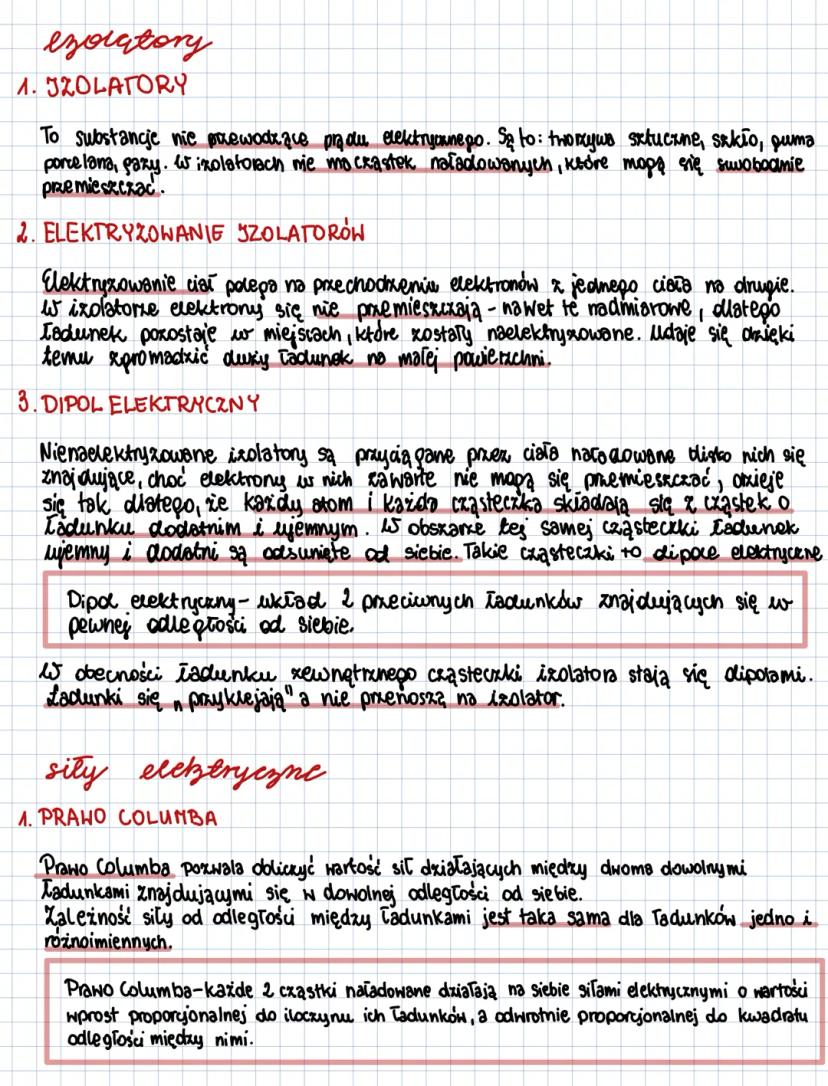 izolatory
1. IZOLATORY
To substancje nie przewodzące prądu elektrycznego. Są to: tworzywa sztuczne, szkło, guma
porcelana, gazy. W izolatorach nie ma cząstek naładowanych, które mogą się swobodnie
przemieszczać.
2. ELEKTRYZOWANIE IZOLATORÓW
Elektryzowanie ciał polega na przechodzeniu elektronów z jednego ciała na drugie.
W izolatorze elektrony się nie przemieszczają - nawet te nadmiarowe, dlatego
ładunek pozostaje w miejscach, które zostały naelektryzowane. Udaje się dzięki
temu zgromadzić duży ładunek na małej powierzchni.
3. DIPOL ELEKTRYCZNY
Nienaelektryzowane izolatory są przyciągane przez ciała naładowane blisko nich się
znajdujące, choć elektrony w nich zawarte nie mogą się przemieszczać, dzieje
się tak dlatego, że każdy atom i każda cząsteczka składają się z cząstek o
ładunku dodatnim i ujemnym. W obszarze tej samej cząsteczki ładunek
ujemny i dodatni są odsunięte od siebie. Takie cząsteczki to dipole elektryczne
Dipol elektryczny - układ 2 przeciwnych ładunków znajdujących się w
pewnej odległości od siebie.
W obecności ładunku zewnętrznego cząsteczki izolatora stają się dipolami.
Ładunki się „przyklejają" a nie przenoszą na izolator.
siły elektryczne
1. PRAWO COLUMBA
Prawo Columba pozwala obliczyć wartość sił działających między dwoma dowolnymi
ładunkami znajdującymi się w dowolnej odległości od siebie.
Zależność siły od odległości między ładunkami jest taka sama dla ładunków jedno i
różnoimiennych.
Prawo Columba - każde 2 cząstki naładowane działają na siebie siłami elektrycznymi o wartości
wprost proporcjonalnej do iloczynu ich ładunków, a odwrotnie proporcjonalnej do kwadratu
odległości między nimi.